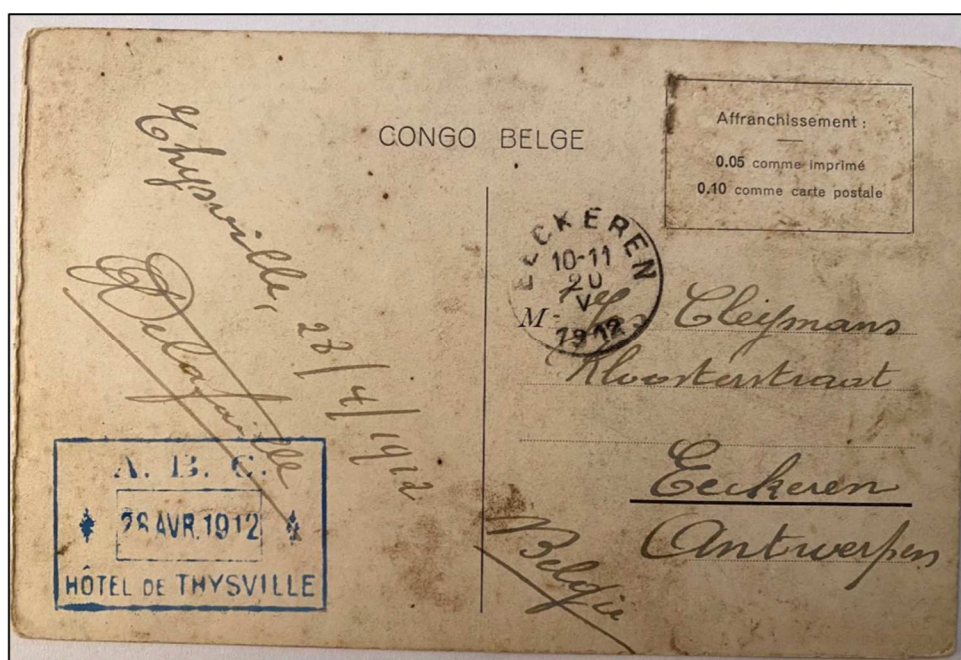 CONGO BELGE
Affranchissement :
0.05 comme imprimé
0.10 comme carte postale
Thysville,
/4/1912
Delafaille
A. B. C.
AVR. 1912
HÔTEL DE THYSVILLE
EECKEREN
10-11
20
V
1912
M Cleymans
Kloosterstraat
Eeckeren
Antwerpen
Belgie